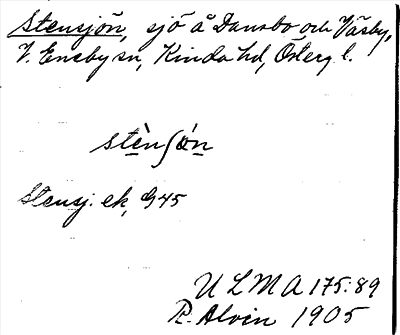 Stensjön, sjö å Dansbo och Väsby,
V. Eneby sn, Kinda hd, Österg. l.
stènʃön
Stensj. ek, G45
ULMA 175:89
R. Alvin 1905